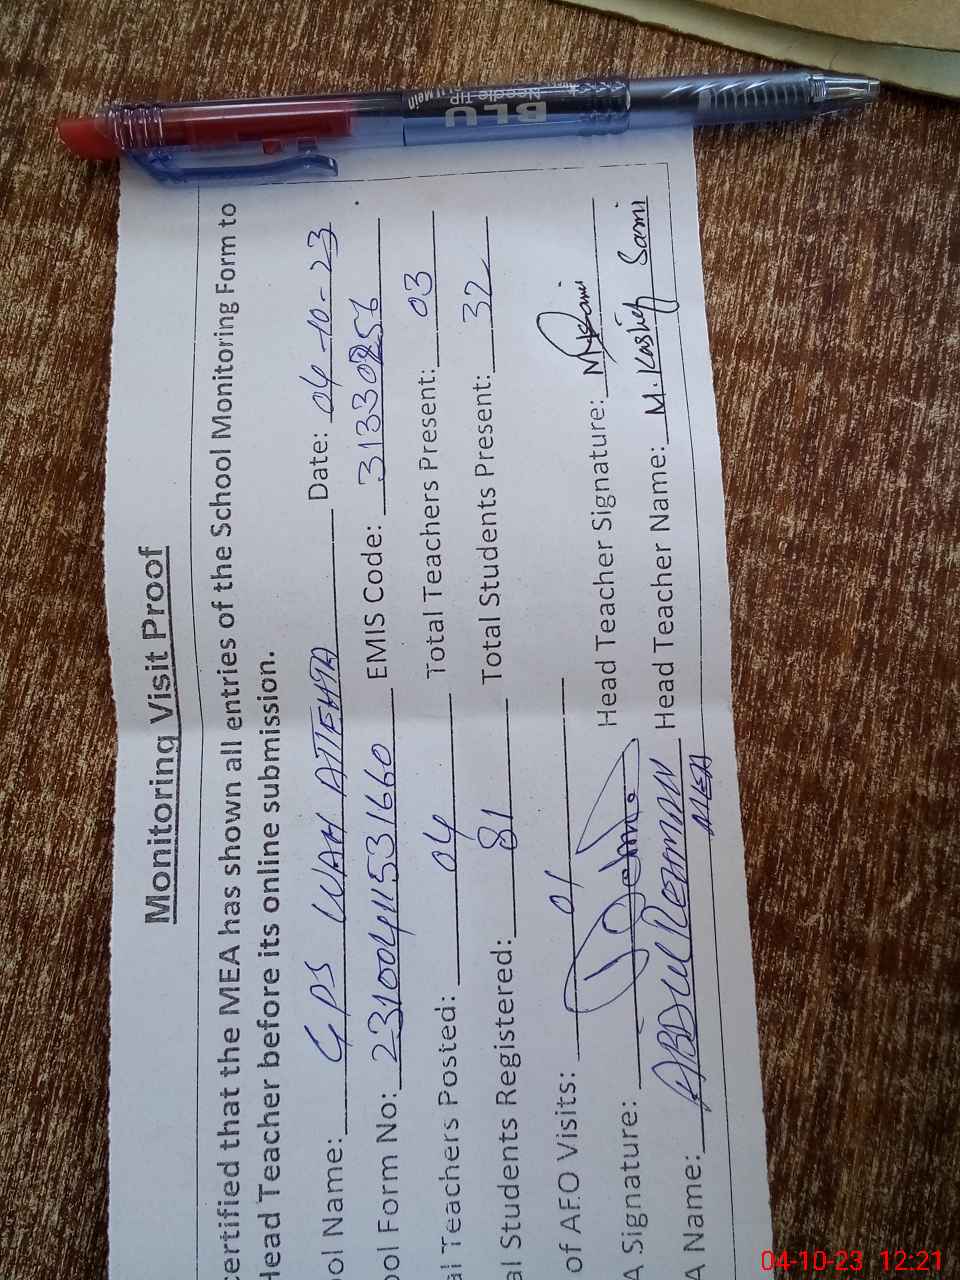 Monitoring Visit Proof
certified that the MEA has shown all entries of the School Monitoring Form to
Head Teacher before its online submission.
ool Name: GPS WAH ATTEHTA Date: 04-10-23
ool Form No: 231004115531660 EMIS Code: 31330256
al Teachers Posted: 04 Total Teachers Present: 03
al Students Registered: 81 Total Students Present: 32
of AEO Visits: 01
A Signature: Head Teacher Signature:
A Name: ABDUL REHMAN Head Teacher Name: M. Kashif Sami
MEA
BLU
Needle Tip
04-10-23 12:21